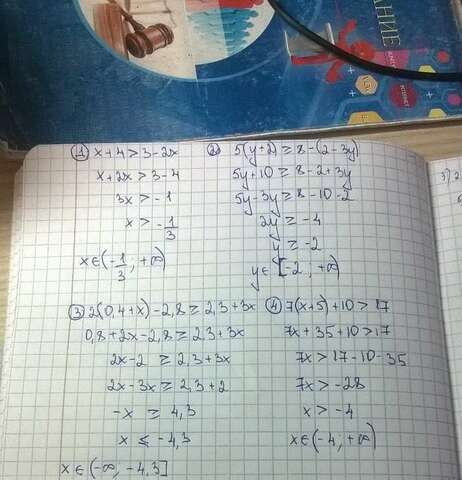 АНИЕ
① x+4>3-2x
x+2x>3-4
3x>-1
x>-1/3
x∈(-1/3; +∞)
② 5(y+2)≥8-(2-3y)
5y+10≥8-2+3y
5y-3y≥8-10-2
2y≥-4
y≥-2
y∈[-2; +∞)
③ 2(0,4+x)-2,8≥2,3+3x
0,8+2x-2,8≥2,3+3x
2x-2≥2,3+3x
2x-3x≥2,3+2
-x≥4,3
x≤-4,3
x∈(-∞, -4,3]
④ 7(x+5)+10>17
7x+35+10>17
7x>17-10-35
7x>-28
x>-4
x∈(-4; +∞)